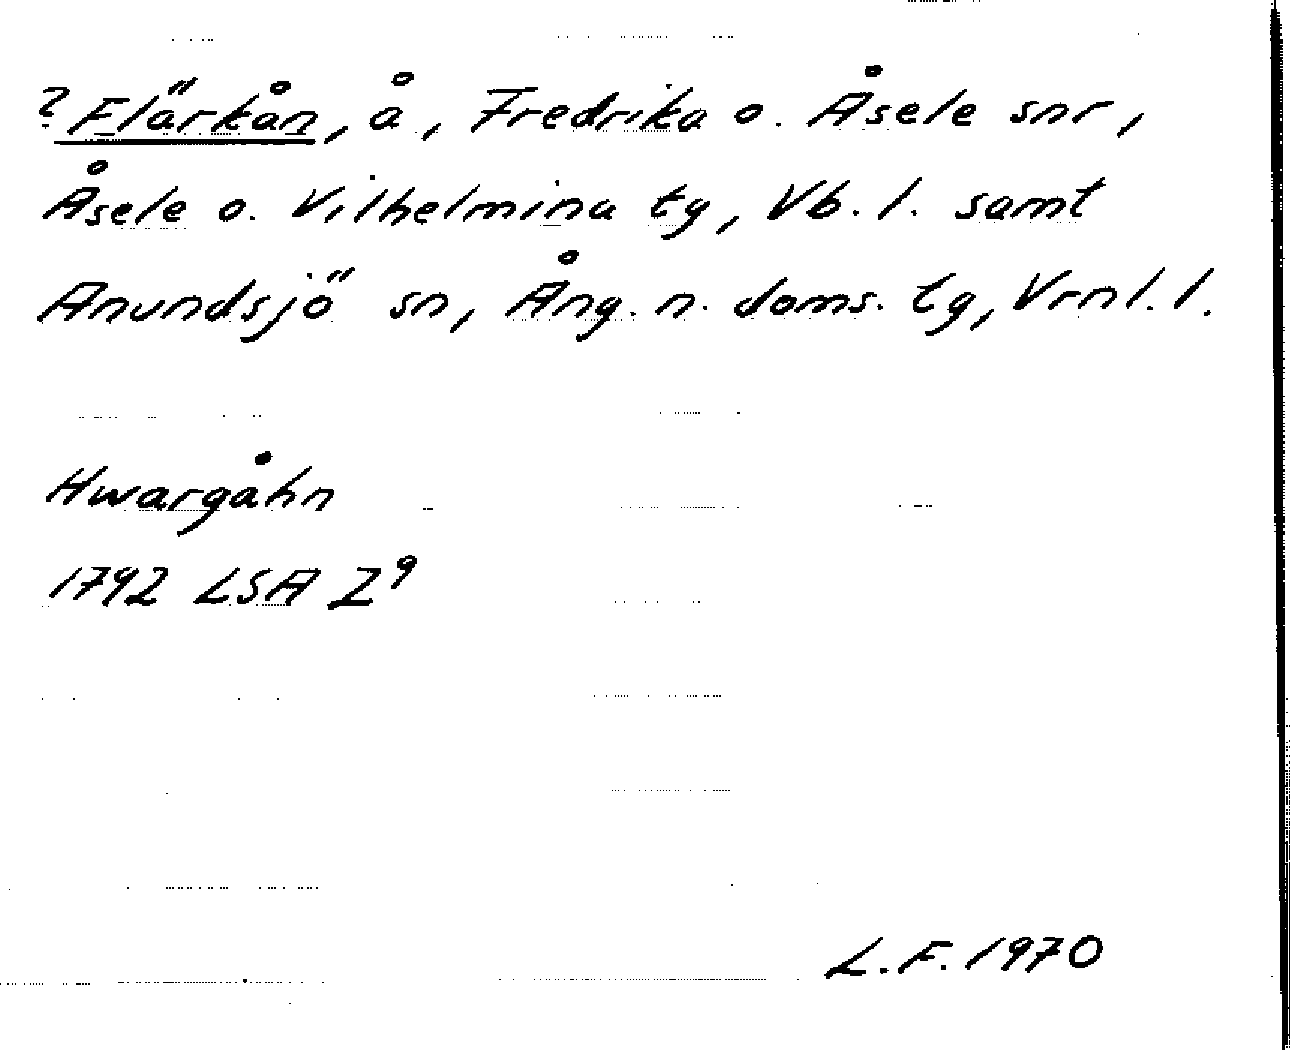 ? Flärkån, å, Fredrika o. Åsele snr,
Åsele o. Vilhelmina tg, Vb. l. samt
Anundsjö sn, Ång. n. doms. tg, Vrnl. l.
Hwargåhn
1792 LSA Z⁹
L.F. 1970